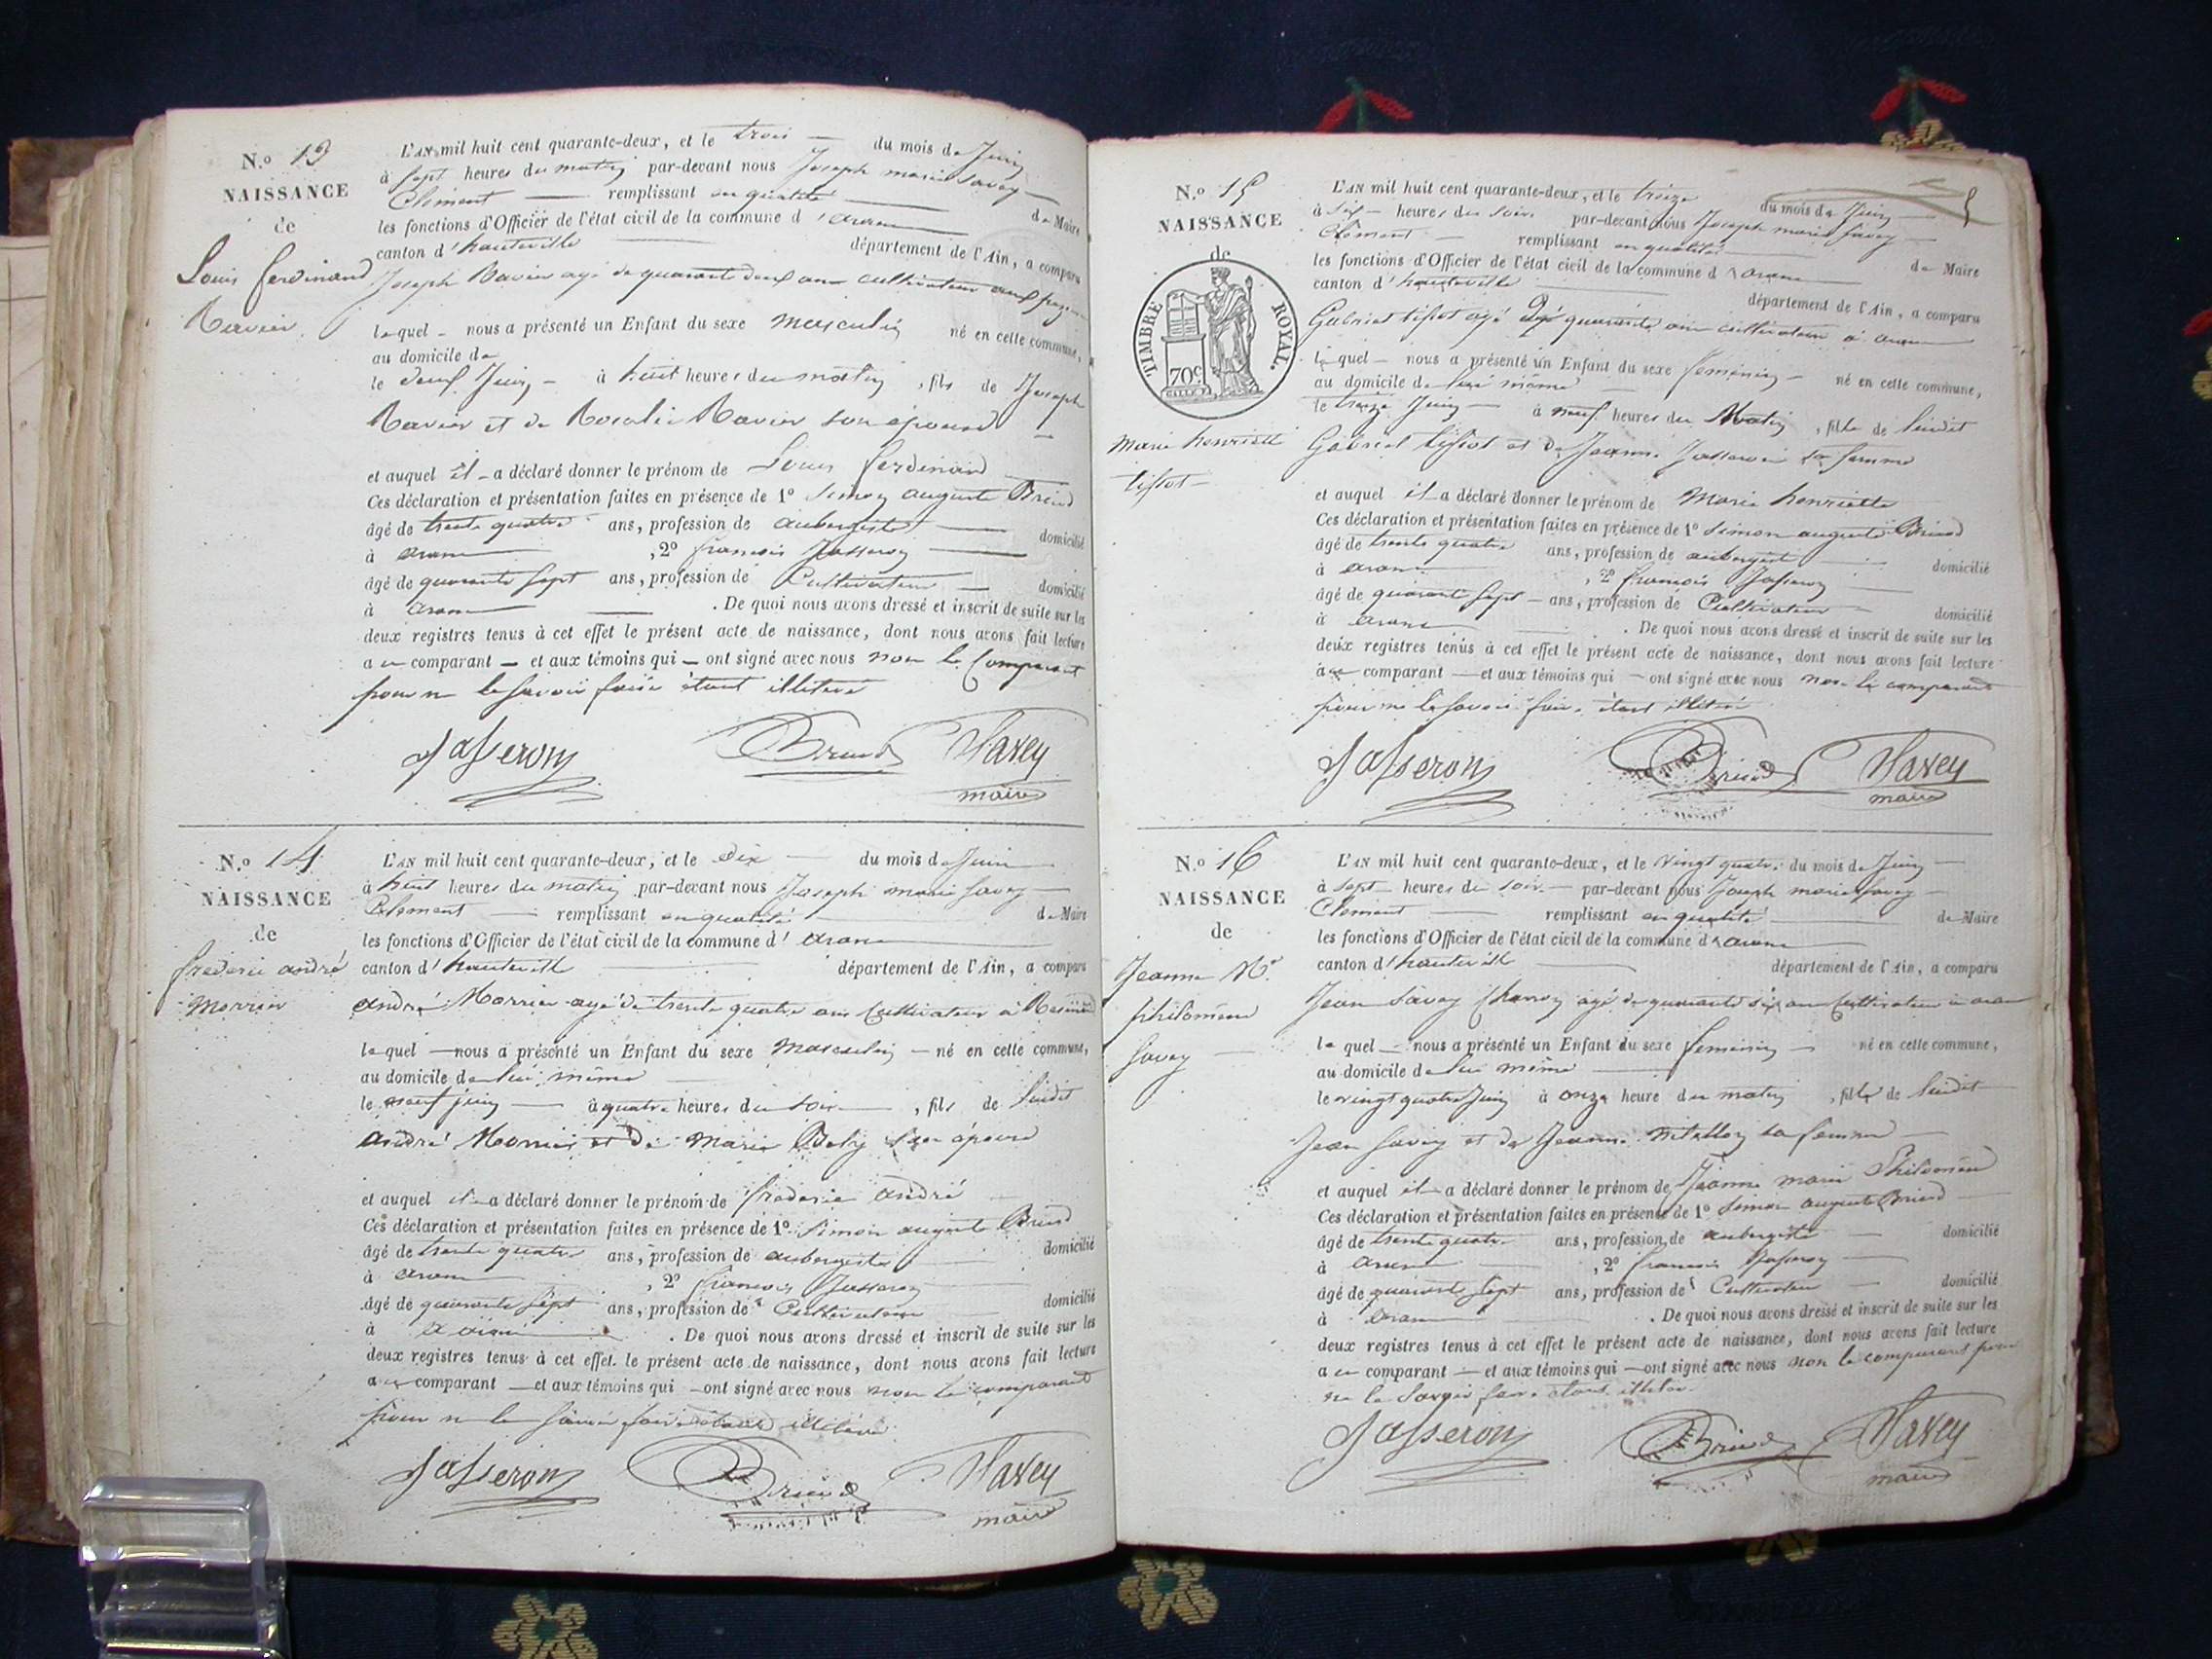 N.o 13
NAISSANCE
de
Louis ferdinand
Ravier
L'AN mil huit cent quarante-deux, et le trois du mois de Juin
à sept heures du matin par-devant nous Joseph marie Savey
Clément remplissant en qualité de Maire
les fonctions d'Officier de l'état civil de la commune d'aranc
canton d'hauteville département de l'Ain, a comparu
Joseph Ravier agé de quarante deux ans cultivateur
lequel nous a présenté un Enfant du sexe masculin né en cette commune,
au domicile de
le deux Juin à huit heures du matin, fils de Joseph
Ravier et de Rosalie Ravier son épouse
et auquel il a déclaré donner le prénom de Louis ferdinand
Ces déclaration et présentation faites en présence de 1o Simon auguste Briend
âgé de trente quatre ans, profession de aubergiste domicilié
à aranc, 2o francois Jasseron
âgé de quarante sept ans, profession de Cultivateur domicilié
à aranc. De quoi nous avons dressé et inscrit de suite sur les
deux registres tenus à cet effet le présent acte de naissance, dont nous avons fait lecture
au comparant et aux témoins qui ont signé avec nous non le Comparant
pour ne le savoir faire étant illiteré
Jasseron Briend Savey
maire
N.o 14
NAISSANCE
de
frederic andré
Morrier
L'AN mil huit cent quarante-deux, et le dix du mois de Juin
à huit heures du matin par-devant nous Joseph marie Savey
Clement remplissant en qualité de Maire
les fonctions d'Officier de l'état civil de la commune d'aranc
canton d'hauteville département de l'Ain, a comparu
andré Morrier agé de trente quatre ans Cultivateur à
lequel nous a présenté un Enfant du sexe masculin né en cette commune,
au domicile de lui même
le neuf juin à quatre heures du soir, fils de ludit
andré Morrier et de Marie son épouse
et auquel il a déclaré donner le prénom de frederic andré
Ces déclaration et présentation faites en présence de 1o Simon auguste Briend
âgé de trente quatre ans, profession de aubergiste domicilié
à aranc, 2o francois Jasseron
âgé de quarante sept ans, profession de Cultivateur domicilié
à. De quoi nous avons dressé et inscrit de suite sur les
deux registres tenus à cet effet le présent acte de naissance, dont nous avons fait lecture
au comparant et aux témoins qui ont signé avec nous non le comparant
pour ne le savoir faire étant illiteré
Jasseron Briend Savey
maire
5
N.o 15
NAISSANCE
de
TIMBRE ROYAL.
70c
Marie henriette
tissot
L'AN mil huit cent quarante-deux, et le treize du mois de Juin
à six heures du soir par-devant nous Joseph marie Savey
Clément remplissant en qualité de Maire
les fonctions d'Officier de l'état civil de la commune d'aranc
canton d'hauteville département de l'Ain, a comparu
Gabriel tissot agé de quarante ans cultivateur à aranc
lequel nous a présenté un Enfant du sexe feminin né en cette commune,
au domicile de lui même
le treize Juin à neuf heures du Matin, fille de ludit
Gabriel tissot et de Jeanne Jasseron sa femme
et auquel il a déclaré donner le prénom de Marie henriette
Ces déclaration et présentation faites en présence de 1o Simon auguste Briend
âgé de trente quatre ans, profession de aubergiste domicilié
à aranc, 2o francois Jasseron
âgé de quarante sept ans, profession de Cultivateur domicilié
à aranc. De quoi nous avons dressé et inscrit de suite sur les
deux registres tenus à cet effet le présent acte de naissance, dont nous avons fait lecture
au comparant et aux témoins qui ont signé avec nous non le comparant
pour ne le savoir faire étant illitéré
Jasseron Briend Savey
maire
N.o 16
NAISSANCE
de
Jeanne Me
philomène
Savey
L'AN mil huit cent quarante-deux, et le vingt quatre du mois de Juin
à sept heures du soir par-devant nous Joseph marie Savey
Clément remplissant en qualité de Maire
les fonctions d'Officier de l'état civil de la commune d'aranc
canton d'hauteville département de l'Ain, a comparu
Jean Savey agé de quarante six ans Cultivateur à aranc
lequel nous a présenté un Enfant du sexe feminin né en cette commune,
au domicile de lui même
le vingt quatre Juin à onze heure du matin, fille de ludit
Jean Savey et de Jeanne sa femme
et auquel il a déclaré donner le prénom de Jeanne marie Philomène
Ces déclaration et présentation faites en présence de 1o Simon auguste Briend
âgé de trente quatre ans, profession de aubergiste domicilié
à aranc, 2o francois Jasseron
âgé de quarante sept ans, profession de Cultivateur domicilié
à aranc. De quoi nous avons dressé et inscrit de suite sur les
deux registres tenus à cet effet le présent acte de naissance, dont nous avons fait lecture
au comparant et aux témoins qui ont signé avec nous non le comparant pour
ne le savoir faire étant illiteré
Jasseron Briend Savey
maire